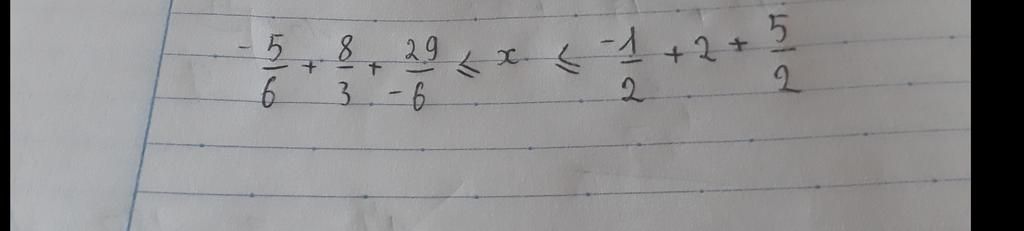 -5/6 + 8/3 + 29/-6 ⩽ x ⩽ -1/2 + 2 + 5/2